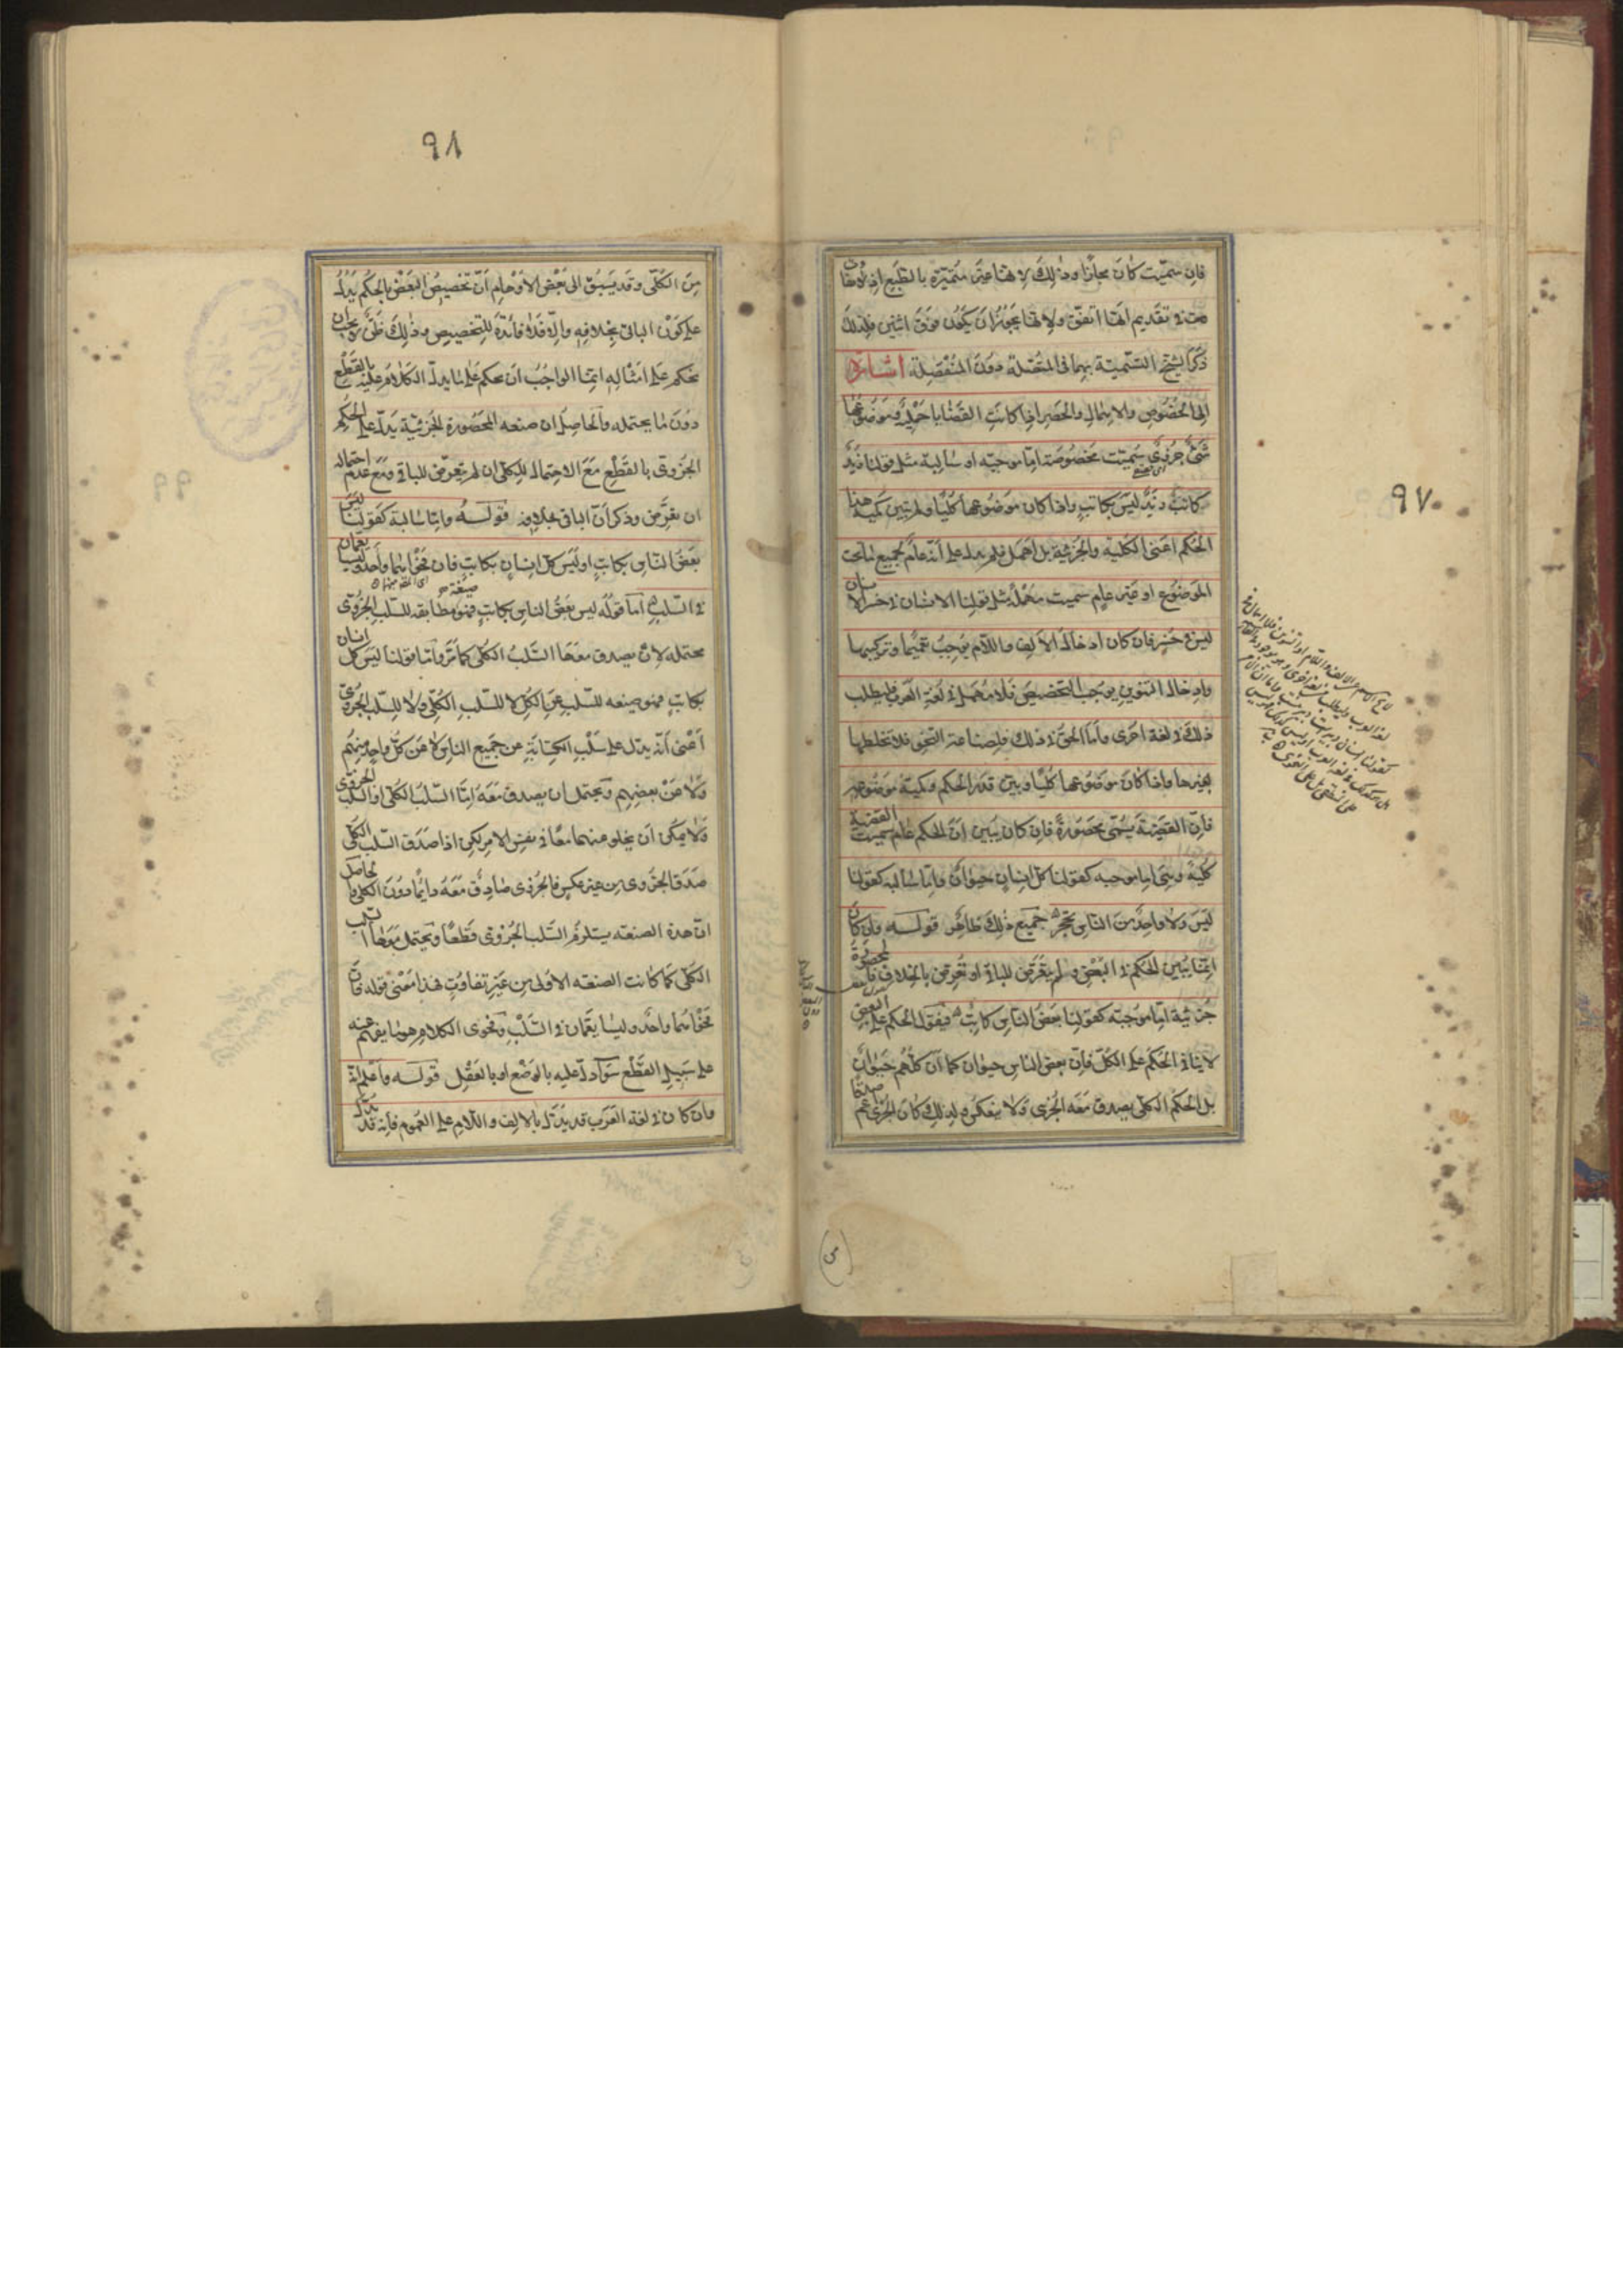 ٩٧
فان سميت كان مجازا وذلك لانها غير متميزة بالطبع اذ لو
في تقديم ايها اتفق ولانها يجوز ان يكون فوق اثنين فلذلك
ذكر الشيخ التسمية بهما في المتصلة دون المنفصلة اشارة
الى الخصوص والاهمال والحصر اذا كانت القضايا حملية وموضوعها
شىء جزوى سميت مخصوصة اما موجبه او سالبة مثل قولنا زيد
كاتب زيد ليس بكاتب واذا كان موضوعها كليا ولم تبين كمية هذا
الحكم اعنى الكلية والجزئية بل اهمل فلم يدل على انه عام لجميع ما تحت
الموضوع او غير عام سميت مهملة مثل قولنا الانسان في خسر الانسان
ليس في خسر فان كان ادخال الالف واللام يوجب تعميما وتركيبها
وادخال التنوين يوجب التخصيص فلا مهمل في لغة العرب فليطلب
ذلك في لغة اخرى واما الحق في ذلك فلصناعة النحو فلا تخلطها
بغيرها واذا كان موضوعها كليا وبين قدر الحكم وكمية موضوعه
فان القضية يسمى محصورة فان كان يبين ان الحكم عام سميت القضية
كلية وهى اما موجبه كقولنا كل انسان حيوان واما سالبه كقولنا
ليس ولا واحد من الناس بحجر جميع ذلك ظاهر قوله وان كان
انما يبين الحكم في البعض ولم يتعرض للباقي او تعرض بالخلاف فالمحصورة
جزئية اما موجبه كقولنا بعض الناس كاتب فيقول الحكم على البعض
لا ينافي الحكم على الكل فان بعض الناس حيوان كما ان كلهم حيوان
بل الحكم الكلى يصدق معه الجزى ولا ينعكس ولذلك كان الجزى اعم صدقا
٩٨
من الكلى وقد يسبق الى بعض الاوهام ان تخصيص البعض بالحكم يدل
على كون الباقى بخلافه والا فلا فائدة للتخصيص وذلك ظن يجب ان
يحكم على امثاله انما الواجب ان يحكم على ما يدل الكلام عليه بالقطع
دون ما يحتمله والحاصل ان صنعه المحصورة الجزئية يدل على الحكم
الجزوى بالقطع مع الاحتمال للكلى ان لم يتعرض للباقى ومع عدم احتماله
ان تعرض وذكر ان الباقى بخلافه قوله واما سالبة كقولنا ليس
بعض الناس بكاتب او ليس كل انسان بكاتب فان فحواهما واحد وليسا يعمان
في السلب اما قوله ليس بعض الناس بكاتب فهو صيغة مطابقه للسلب الجزوى
محتمله لان يصدق معها السلب الكلى كما مر واما قولنا ليس كل انسان
بكاتب فهو صيغه للسلب عن الكل لا للسلب الكلى ولا للسلب الجزوى
اعنى انه يدل على سلب الكتابة عن جميع الناس لا عن كل واحد منهم
ولا عن بعضهم ويحتمل ان يصدق معه اما السلب الكلى او السلب الجزوى
ولا يمكن ان يخلو منهما معا في نفس الامر لكن اذا صدق السلب الكلى
صدق الجزوى من غير عكس فالجزوى صادق معه دايما دون الكلى فالحاصل
ان هذه الصنعه يستلزم السلب الجزوى قطعا ويحتمل معها السلب
الكلى كما كانت الصنعه الاولى من غير تفاوت هذا معنى قوله فان
فحواهما واحد وليسا يعمان في السلب وفحوى الكلام هو ما يفهم عنه
على سبيل القطع سواء دل عليه بالوضع او بالعقل قوله واعلم انه
وان كان في لغه العرب قد يدل بالالف واللام على العموم فانه قد يدل